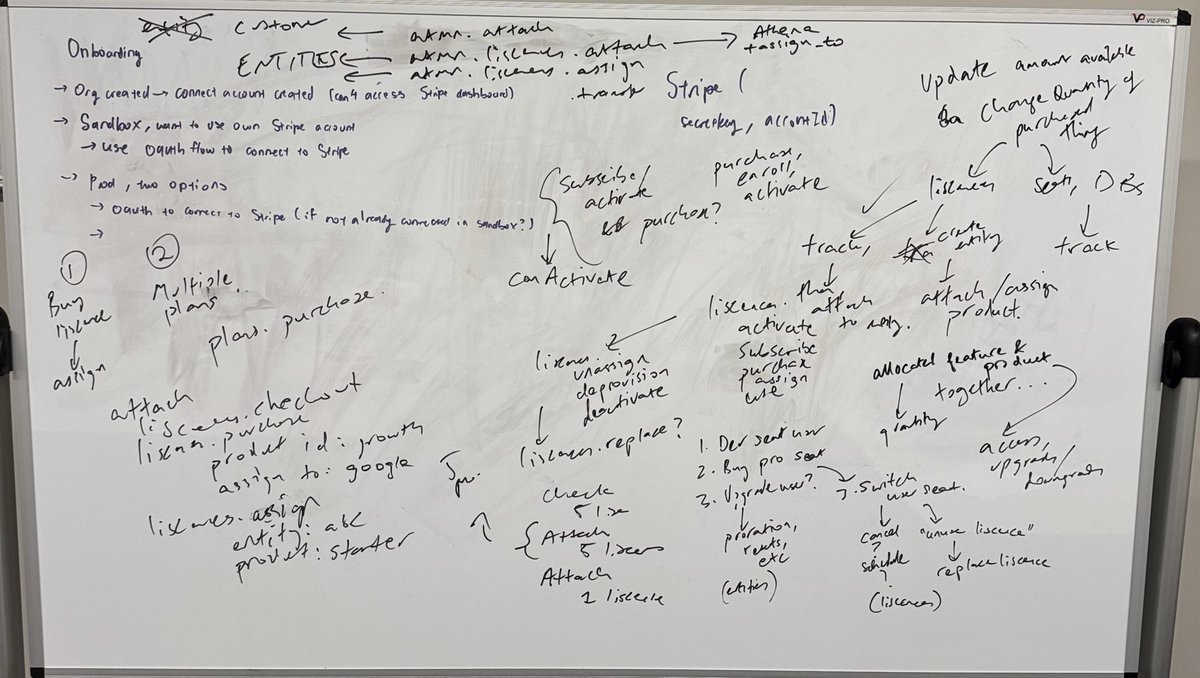 VIZ-PRO
Onboarding
→ Org created → connect account created (can't access Stripe dashboard)
→ Sandbox, want to use own Stripe account
→ use OAuth flow to connect to Stripe
→ Prod, two options
→ OAuth to connect to Stripe (if not already connected in sandbox?)
→
ENTITIES
← atmn. attach
← atmn. liscences. attach →
← atmn. liscenses. assign
. transfer
Athena
+ assign_to
Stripe (
secretkey, accountId)
Update amount available
Change Quantity of
purchased
thing
liscences
seats, DBs
track,
create
entity
track
attach/assign
product.
Subscribe/
activate
purchase?
purchase,
enroll,
activate
canActivate
1
Buy
liscence
↓
assign
2
Multiple
plans
plans. purchase.
attach
liscences. checkout
liscences. purchase
product id: growth
assign to: google
liscences. assign
entity: abc
product: starter
activate attach to
Subscribe
purchase
assign
use
unassign
deprovision
deactivate
liscences. replace?
check
Attach
5 liscences
Attach
1 liscence
1. Dev seat user
2. Buy pro seat
3. Upgrade user?
proration,
resets,
etc
(entities)
3. Switch
user seat.
cancel
?
schedule
?
(liscences)
"unused liscence"
replace liscence
allocated feature & product
together...
quantity
access,
upgrades/
downgrades